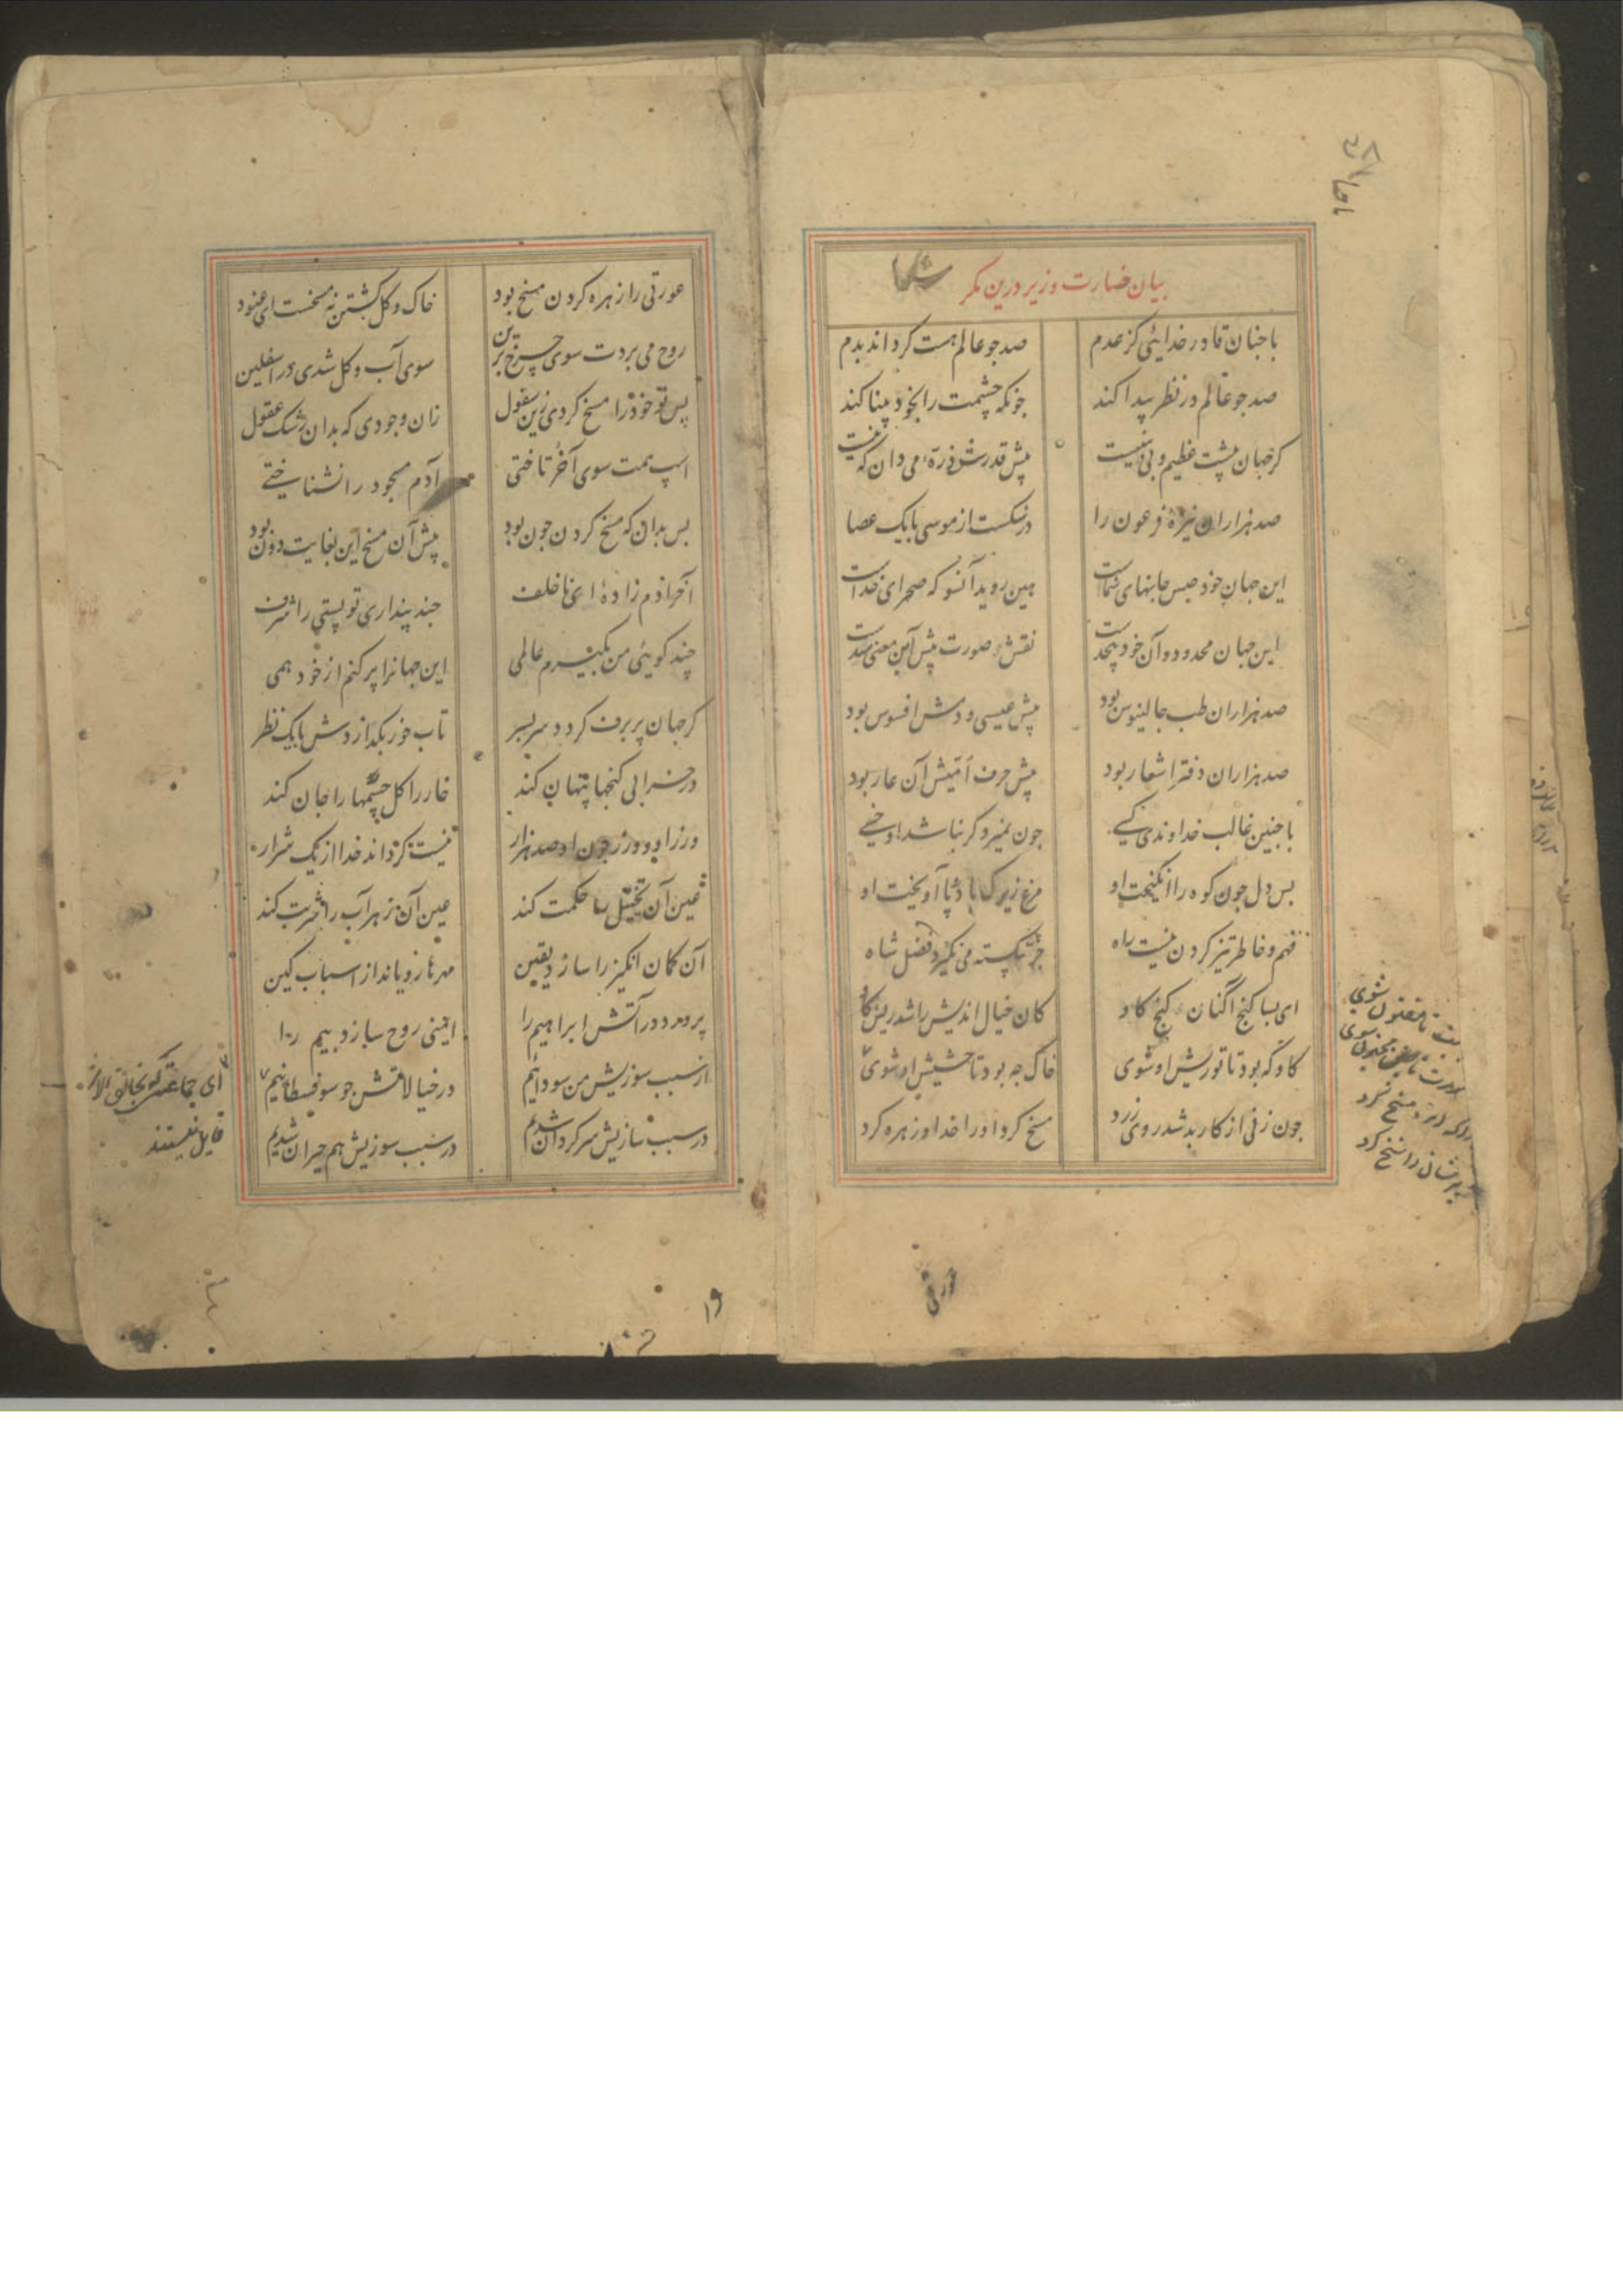 بیان خسارت وزیر درین مکر
باجنان قادر خدایئی کز عدم صد جو عالم هست کرداند بدم
صد جو عالم در نظر پیدا کند جونکه چشمت را بخود بینا کند
کر جهان پیشت عظیم و بی بنیست پیش قدرت ذرّهٔ می دان که نیست
صد هزاران نیزهٔ فرعون را در شکست از موسی بایک عصا
این جهان خود حبس جانهای شماست هین روید آنسو که صحرای خداست
این جهان محدود و آن خود بیحدست نقش و صورت پیش آن معنی سدست
صد هزاران طب جالینوس بود پیش عیسی و دمش افسوس بود
صد هزاران دفتر اشعار بود پیش حرف امّیش آن عار بود
باجنین غالب خداوندی کسی جون نمیرد کر نباشد او خسی
بس دل جون کوه را انکیخت او مرغ زیرک با دو پا آویخت او
فهم و خاطر تیز کردن نیست راه جز شکسته می نکیرد فضل شاه
ای بسا کنج اکنان کنج کاو کان خیال اندیش را شد ریش کاو
کاو که بود تا تو ریش او شوی خاک جه بود تا حشیش او شوی
جون زنی از کار بد شد روی زرد مسخ کرد اورا خدا و زهره کرد
مسخ کرد
عورتی
عورتی را زهره کردن مسخ بود خاک و کل کشتن نه مسخست ای عنود
روح می بردت سوی چرخ برین سوی آب و کل شدی در اسفلین
پس تو خود را مسخ کردی زین سفول زان وجودی که بدان رشک عقول
اسپ همت سوی آخُر تاختی آدم مسجود را نشناختی
بس بدان که مسخ کردن جون بود پیش آن مسخ این بغایت دون بود
آخر آدم زادهٔ ای ناخلف جند پنداری تو پستی را شرف
چند کویئی من بکیرم عالمی این جهانرا پر کنم از خود همی
کر جهان پر برف کردد سربسر تاب خور بکدازدش بایک نظر
وزر او و وزر جون او صد هزار نیست کرداند خدا از یک شرار
عین آن تخییل را حکمت کند عین آن زهرآب را شربت کند
در خرابی کنجها پنهان کند خار را کل جسمها را جان کند
آن کمان انکیز را سازد یقین مهرها رویاند از اسباب کین
پرورد در آتش ابراهیم را ایمنی روح سازد بیم را
از سبب سوزیش من سودائیم در خیالاتش جو سوفسطائیم
در سبب سازیش سرکردان شدم در سبب سوزیش هم حیران شدم
ای جماعتی که بخالق
قایل نیستند
۱۹